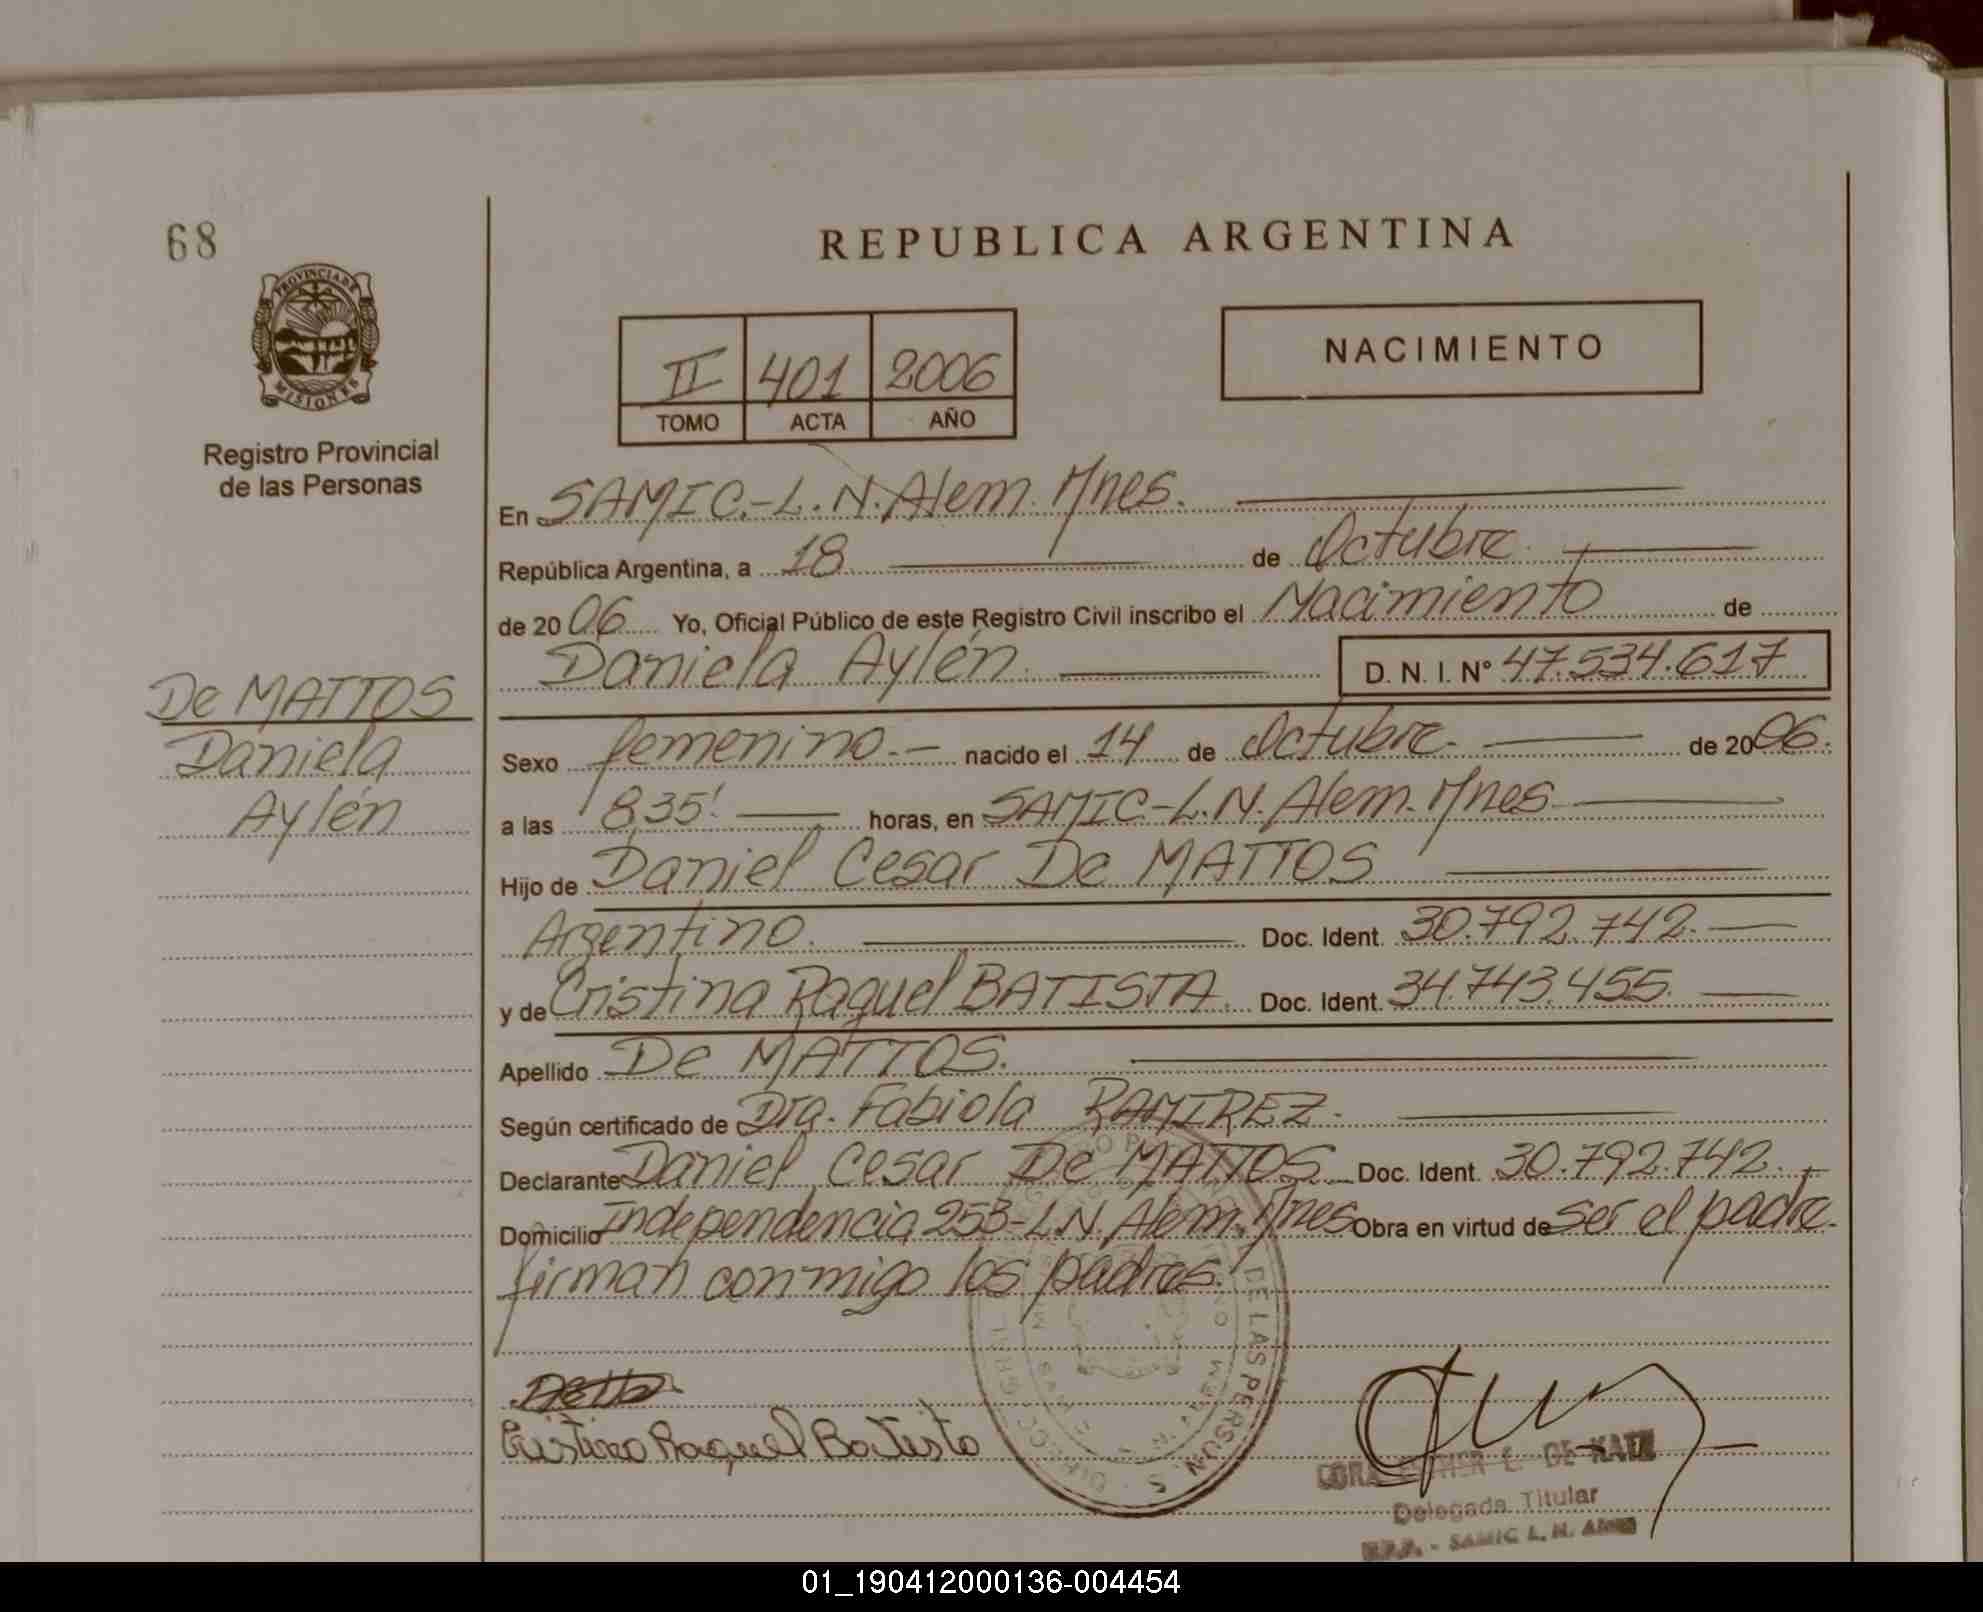 68
REPUBLICA ARGENTINA
PROVINCIA DE
MISIONES
II 401 2006
TOMO ACTA AÑO
NACIMIENTO
Registro Provincial
de las Personas
En SAMIC.-L.N.Alem. Mnes.
República Argentina, a 18 de Octubre.
de 2006 Yo, Oficial Público de este Registro Civil inscribo el Nacimiento de
Daniela Aylén. D. N. I. N° 47.534.617
De MATTOS
Daniela
Aylén
Sexo femenino.- nacido el 14 de Octubre. de 2006.
a las 8,35' horas, en SAMIC-L.N. Alem. Mnes
Hijo de Daniel Cesar De MATTOS
Argentino. Doc. Ident. 30.792.742.
y de Cristina Raquel BATISTA. Doc. Ident. 34.743.455.
Apellido De MATTOS.
Según certificado de Dra. Fabiola RAMIREZ.
Declarante Daniel Cesar De MATTOS Doc. Ident. 30.792.742.
Domicilio Independencia 253-L.N. Alem. Mnes Obra en virtud de ser el padre.
firman conmigo los padres.
DE LAS PERSON S
Cristina Raquel Batista
DE KATZ
Delegada Titular
R.P.P. - SAMIC L. N. Alem
01_190412000136-004454